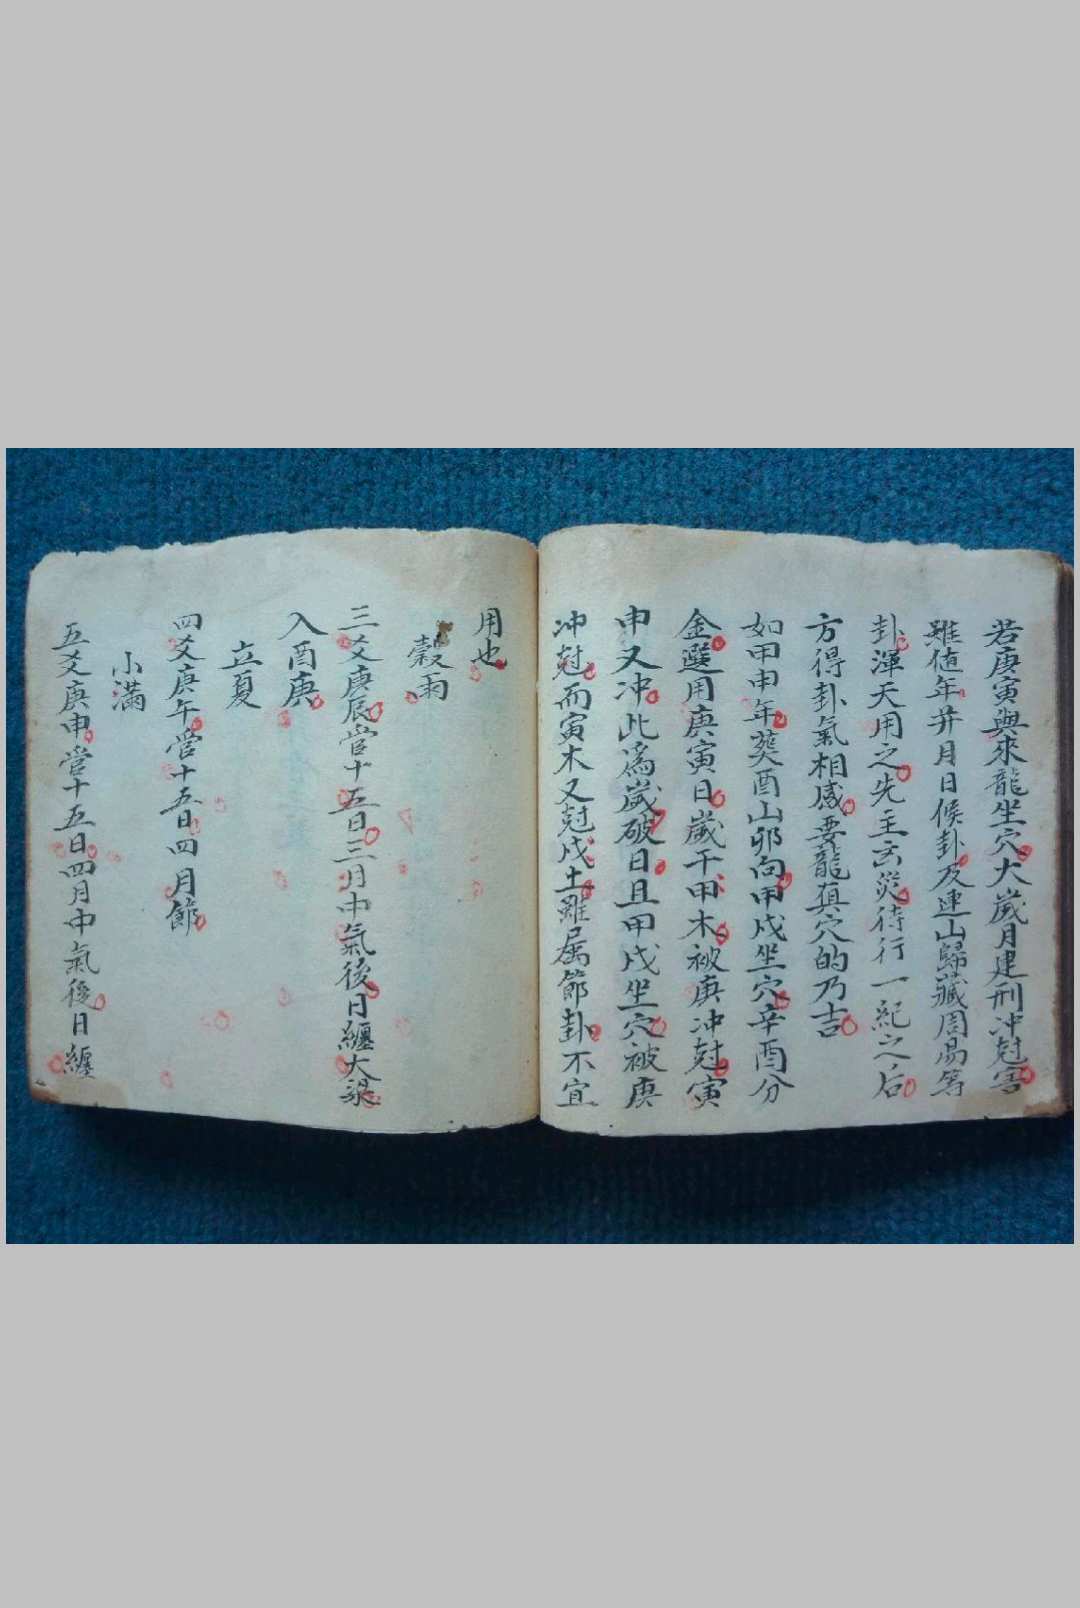 若庚寅與來龍坐穴大歲月建刑冲尅害
雖值年并月日候卦及連山歸藏周昜等
卦渾天用之先主凶災待行一紀之后
方得卦氣相感要龍真穴的乃吉
如甲申年葵酉山卯向甲戍坐穴辛酉分
金選用庚寅日歲干甲木被庚冲尅寅
申又冲此為歲破日且甲戍坐穴被庚
冲尅而寅木又尅戍土雖属節卦不宜
用也
穀雨
三爻庚辰當十五日三月中氣後日纏大梁
入酉庚
立夏
四爻庚午當十五日四月節
小滿
五爻庚申當十五日四月中氣後日纏